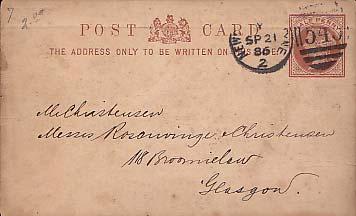 7
2.00
POST CARD
THE ADDRESS ONLY TO BE WRITTEN ON THIS SIDE
HALF PENNY
SP 21
86
2
545
Mr Christensen
Messrs Rosenvinge & Christensen
118 Broomielaw
Glasgow.